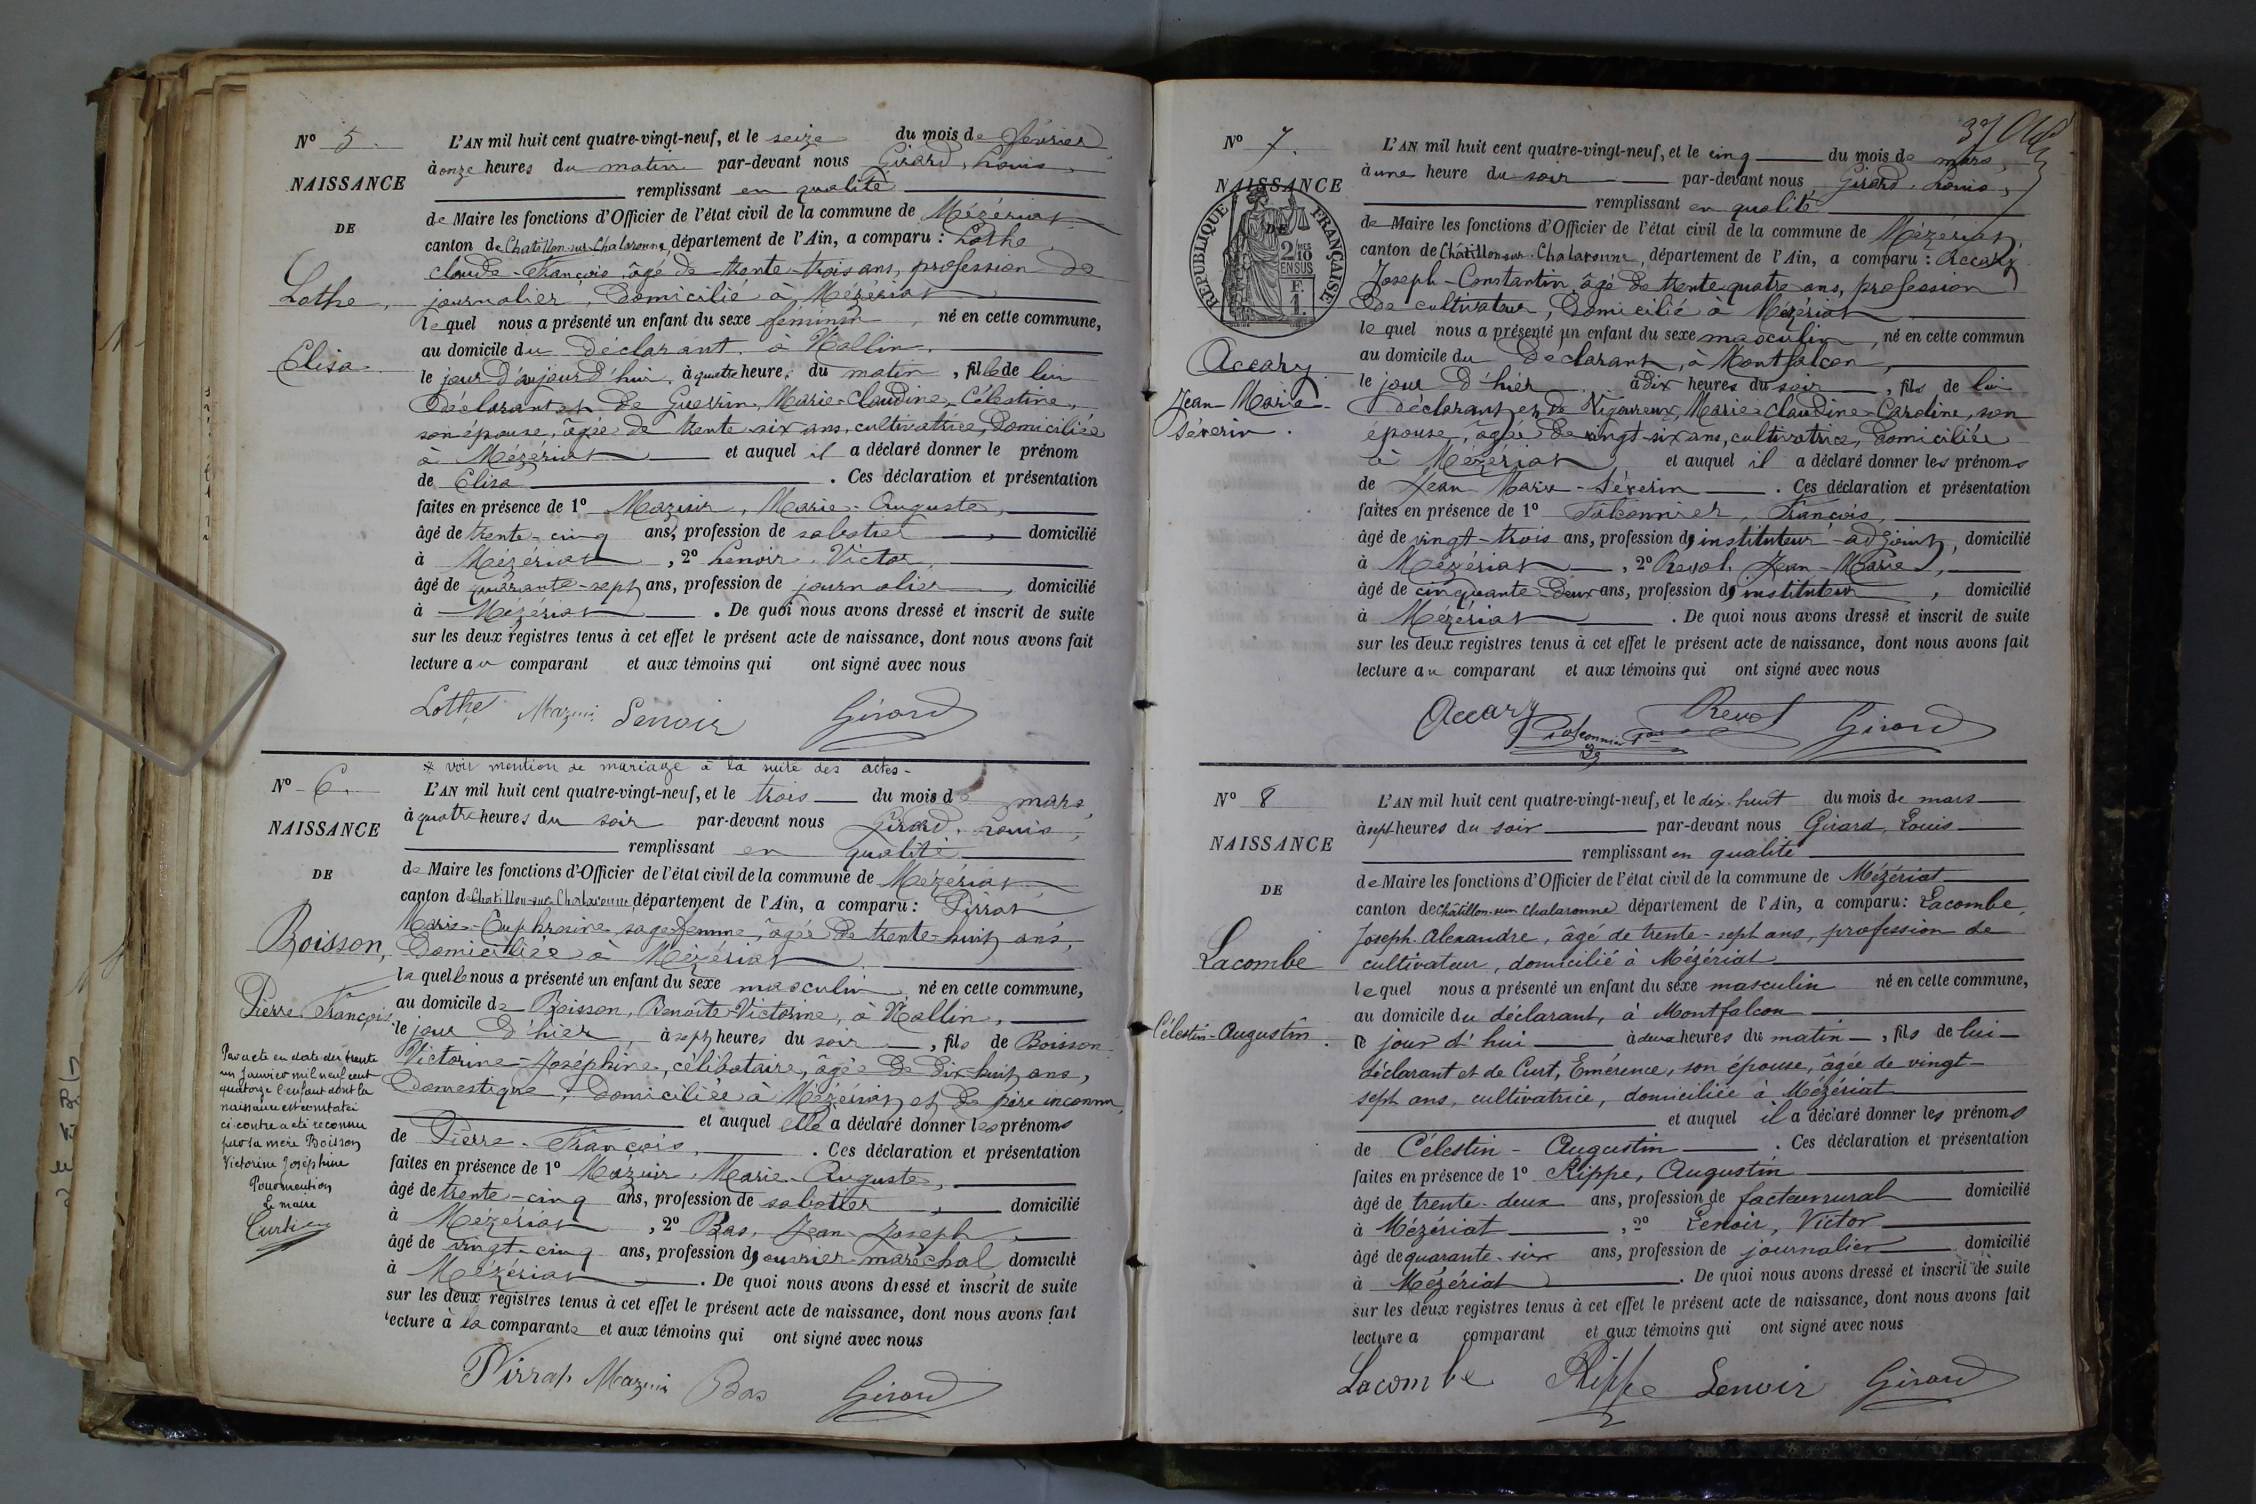 N° 5.
NAISSANCE
DE
Lothe,
Elisa.
L'AN mil huit cent quatre-vingt-neuf, et le seize du mois de février
à onze heures du matin par-devant nous Girard, Louis,
remplissant en qualité
de Maire les fonctions d'Officier de l'état civil de la commune de Mézériat
canton de Chatillon-sur-Chalaronne, département de l'Ain, a comparu : Lothe,
claude-François, âgé de trente-trois ans, profession de
journalier, domicilié à Mézériat
lequel nous a présenté un enfant du sexe féminin, né en cette commune,
au domicile du déclarant, à Vallin,
le jour d'aujourd'hui, à quatre heures du matin, fille de lui
déclarant et de Guerrin, Marie-claudine, Célestine,
son épouse, âgée de trente-six ans, cultivatrice, domiciliée
à Mézériat et auquel il a déclaré donner le prénom
de Elisa. Ces déclaration et présentation
faites en présence de 1° Mazuir, Marie-Auguste,
âgé de trente-cinq ans, profession de sabotier, domicilié
à Mézériat, 2° Lenoir, Victor,
âgé de quarante-sept ans, profession de journalier, domicilié
à Mézériat. De quoi nous avons dressé et inscrit de suite
sur les deux registres tenus à cet effet le présent acte de naissance, dont nous avons fait
lecture au comparant et aux témoins qui ont signé avec nous
Lothe Mazuir Lenoir Girard
* voir mention de mariage à la suite des actes-
N° 6.
NAISSANCE
DE
Boisson,
Pierre François.
Par acte en date du trente
un janvier mil neuf cent
quatorze l'enfant dont la
naissance est constatée
ci-contre a été reconnu
par sa mère Boisson
Victorine Joséphine
Pour mention
Le maire
L'AN mil huit cent quatre-vingt-neuf, et le trois du mois de mars,
à quatre heures du soir par-devant nous Girard, Louis,
remplissant en qualité
de Maire les fonctions d'Officier de l'état civil de la commune de Mézériat
canton de Chatillon-sur-Chalaronne département de l'Ain, a comparu : Pirrat
Marie-Euphrosine, sage femme, âgée de trente-huit ans,
domiciliée à Mézériat
laquelle nous a présenté un enfant du sexe masculin, né en cette commune,
au domicile de Boisson, Benoîte-Victorine, à Vallin,
le jour d'hier, à sept heures du soir, fils de Boisson
Victorine-Joséphine, célibataire, âgée de dix-huit ans,
domestique, domiciliée à Mézériat et de père inconnu,
et auquel elle a déclaré donner les prénoms
de Pierre-François. Ces déclaration et présentation
faites en présence de 1° Mazuir, Marie-Auguste,
âgé de trente-cinq ans, profession de sabotier, domicilié
à Mézériat, 2° Bas, Jean-Joseph,
âgé de vingt-cinq ans, profession d'ouvrier-maréchal, domicilié
à Mézériat. De quoi nous avons dressé et inscrit de suite
sur les deux registres tenus à cet effet le présent acte de naissance, dont nous avons fait
lecture à la comparante et aux témoins qui ont signé avec nous
Pirrat Mazuir Bas Girard
N° 7.
NAISSANCE
DE
RÉPUBLIQUE FRANÇAISE
2/10 EN SUS
F. 1.
Accary
Jean Marie-
Séverin.
L'AN mil huit cent quatre-vingt-neuf, et le cinq du mois de mars,
à une heure du soir par-devant nous Girard, Louis,
remplissant en qualité
de Maire les fonctions d'Officier de l'état civil de la commune de Mézériat,
canton de Châtillon-sur-Chalaronne, département de l'Ain, a comparu : Accary
Joseph-Constantin, âgé de trente quatre ans, profession
de cultivateur, domicilié à Mézériat
lequel nous a présenté un enfant du sexe masculin, né en cette commun
au domicile du déclarant, à Montfalcon,
le jour d'hier à dix heures du soir, fils de lui
déclarant et de Vigoureux, Marie-claudine-Caroline, son
épouse, âgée de vingt-six ans, cultivatrice, domiciliée
à Mézériat et auquel il a déclaré donner les prénoms
de Jean Marie-Séverin. Ces déclaration et présentation
faites en présence de 1° Falconnier, François,
âgé de vingt-trois ans, profession d'instituteur-adjoint, domicilié
à Mézériat, 2° Revol, Jean-Marie,
âgé de cinquante-deux ans, profession d'instituteur, domicilié
à Mézériat. De quoi nous avons dressé et inscrit de suite
sur les deux registres tenus à cet effet le présent acte de naissance, dont nous avons fait
lecture au comparant et aux témoins qui ont signé avec nous
Accary Falconnier Revol Girard
N° 8
NAISSANCE
DE
Lacombe
Célestin-Augustin.
L'AN mil huit cent quatre-vingt-neuf, et le dix-huit du mois de mars
à sept heures du soir par-devant nous Girard, Louis
remplissant en qualité
de Maire les fonctions d'Officier de l'état civil de la commune de Mézériat
canton de Châtillon-sur-Chalaronne département de l'Ain, a comparu : Lacombe,
Joseph-Alexandre, âgé de trente-sept ans, profession de
cultivateur, domicilié à Mézériat
lequel nous a présenté un enfant du sexe masculin né en cette commune,
au domicile du déclarant, à Montfalcon
le jour d'hui à deux heures du matin, fils de lui-
déclarant et de Curt, Emérence, son épouse, âgée de vingt-
sept ans, cultivatrice, domiciliée à Mézériat
et auquel il a déclaré donner les prénoms
de Célestin-Augustin. Ces déclaration et présentation
faites en présence de 1° Rippe, Augustin
âgé de trente-deux ans, profession de facteur rural domicilié
à Mézériat, 2° Lenoir, Victor
âgé de quarante-six ans, profession de journalier domicilié
à Mézériat. De quoi nous avons dressé et inscrit de suite
sur les deux registres tenus à cet effet le présent acte de naissance, dont nous avons fait
lecture a comparant et aux témoins qui ont signé avec nous
Lacombe Rippe Lenoir Girard